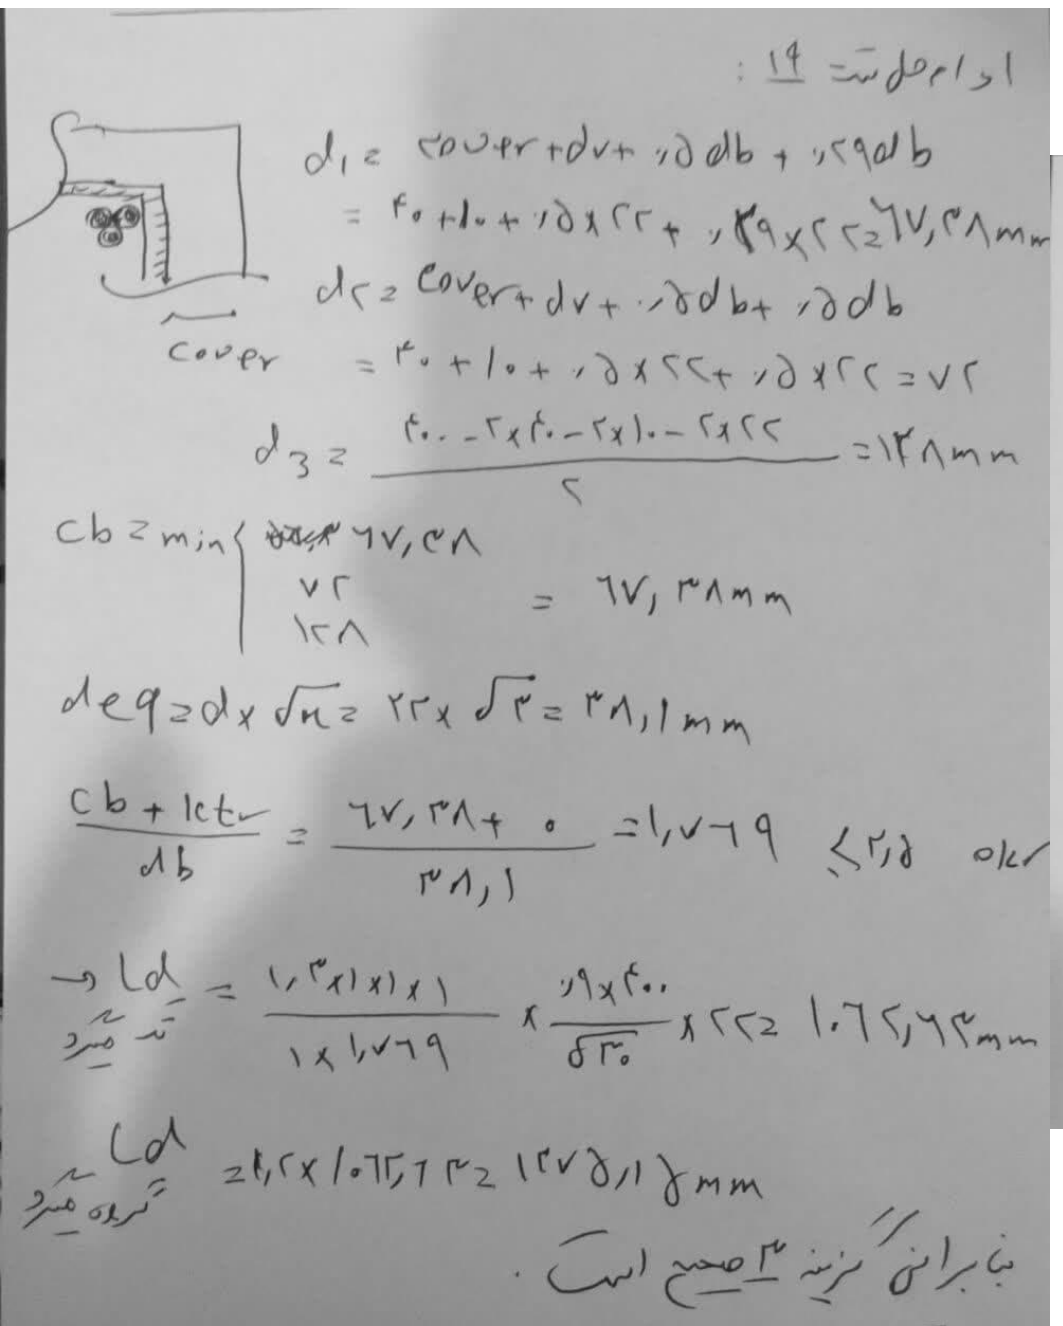 ادامه حل تست ۱۹ :
d₁ = cover + dv + ,۵ db + ,۲۹ db
= ۴۰ + ۱۰ + ,۵ × ۲۲ + ,۲۹ × ۲۲ = ۶۷,۳۸ mm
d۲ = cover + dv + ,۵ db + ,۵ db
= ۴۰ + ۱۰ + ,۵ × ۲۲ + ,۵ × ۲۲ = ۷۲
cover
d₃ = (۴۰۰ - ۲×۴۰ - ۲×۱۰ - ۲×۲۲) / ۲ = ۱۲۸ mm
cb = min { ۶۷,۳۸
۷۲ = ۶۷,۳۸ mm
۱۲۸
deq = d × √n = ۲۲ × √۳ = ۳۸,۱ mm
(cb + ktr) / db = (۶۷,۳۸ + ۰) / ۳۸,۱ = ۱,۷۶۹ ≤ ۲,۵ ok
→ Ld تک میلگرد = (۱,۳×۱×۱×۱) / (۱×۱,۷۶۹) × (,۹×۴۰۰) / √۳۰ × ۲۲ = ۱۰۶۲,۶۳ mm
Ld گروه میلگرد = ۱,۲ × ۱۰۶۲,۶۳ = ۱۲۷۵,۱۵ mm
بنابراین گزینه ۳ صحیح است .